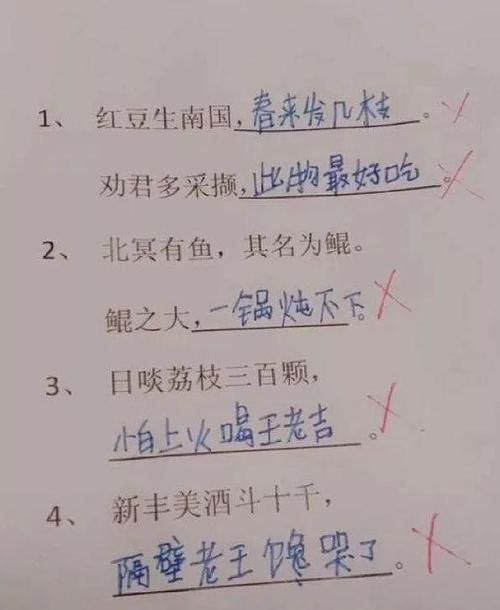 1、 红豆生南国,春来发几枝。
劝君多采撷,此物最好吃。
2、 北冥有鱼，其名为鲲。
鲲之大,一锅炖不下。
3、 日啖荔枝三百颗，
怕上火喝王老吉。
4、 新丰美酒斗十千，
隔壁老王馋哭了。